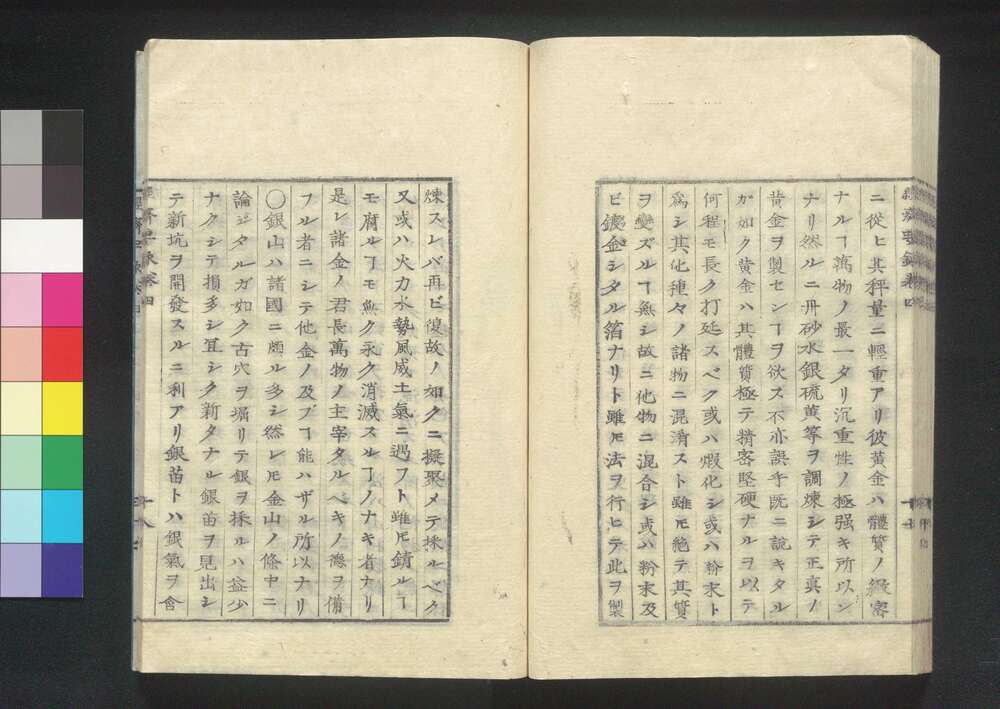 ニ從ヒ其秤量ニ輕重アリ彼黄金ハ體質ノ緻密
ナルヿ萬物ノ最一タリ沉重性ノ極强キ所以ン
ナリ然ルニ丹砂水銀硫黄等ヲ調煉シテ正真ノ
黄金ヲ製センヿヲ欲ス不亦誤乎既ニ說キタル
カ如ク黄金ハ其體質極テ精密堅硬ナルヲ以テ
何程モ長ク打延スベク或ハ煆化シ或ハ粉末ト
爲シ其他種々ノ諸物ニ混淆スト雖𪜈絶テ其質
ヲ變ズルヿ無シ故ニ他物ニ混合シ或ハ粉末及
ビ鍍金シタル箔ナリト雖𪜈法ヲ行ヒテ此ヲ製
十七
煉スレバ再ビ復故ノ如クニ擬聚メテ採ルベク
又或ハ火力水勢風威土氣ニ遇フト雖𪜈錆ルヿ
モ腐ルヿモ無ク永ク消滅スルヿノナキ者ナリ
是レ諸金ノ君長萬物ノ主宰タルベキノ德ヲ備
フル者ニシテ他金ノ及ブヿ能ハザル所以ナリ
〇銀山ハ諸國ニ頗ル多シ然レ𪜈金山ノ條中ニ
論ジタルガ如ク古穴ヲ堀リテ銀ヲ採ルハ益少
ナクシテ損多シ宜シク新タナル銀苗ヲ見出シ
テ新坑ヲ開發スルニ利アリ銀苗トハ銀氣ヲ含
十八